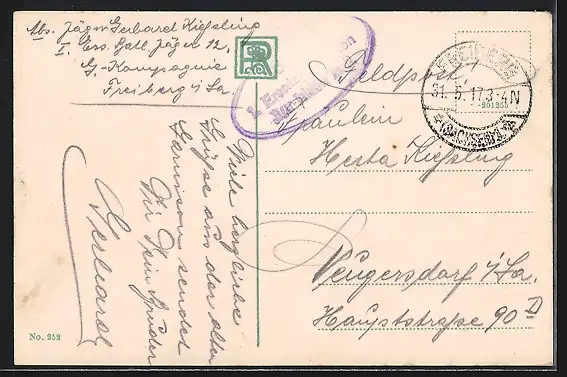 Abs. Jäger Gerhard Kießling
I. Ers. Batl. Jäger 12,
G.-Kompagnie
Freiberg i/Sa.
Feldpost.
FREIBERG
31. 5. 17. 3-4N
(SACHSEN)
-201255
Fräulein
Hesta Kießling
Neugersdorf i/Sa.
Hauptstraße 90 D
Viele herzliche
Grüße aus der alten
Garnison sendet
Dir Dein Bruder
Gerhard
No. 252